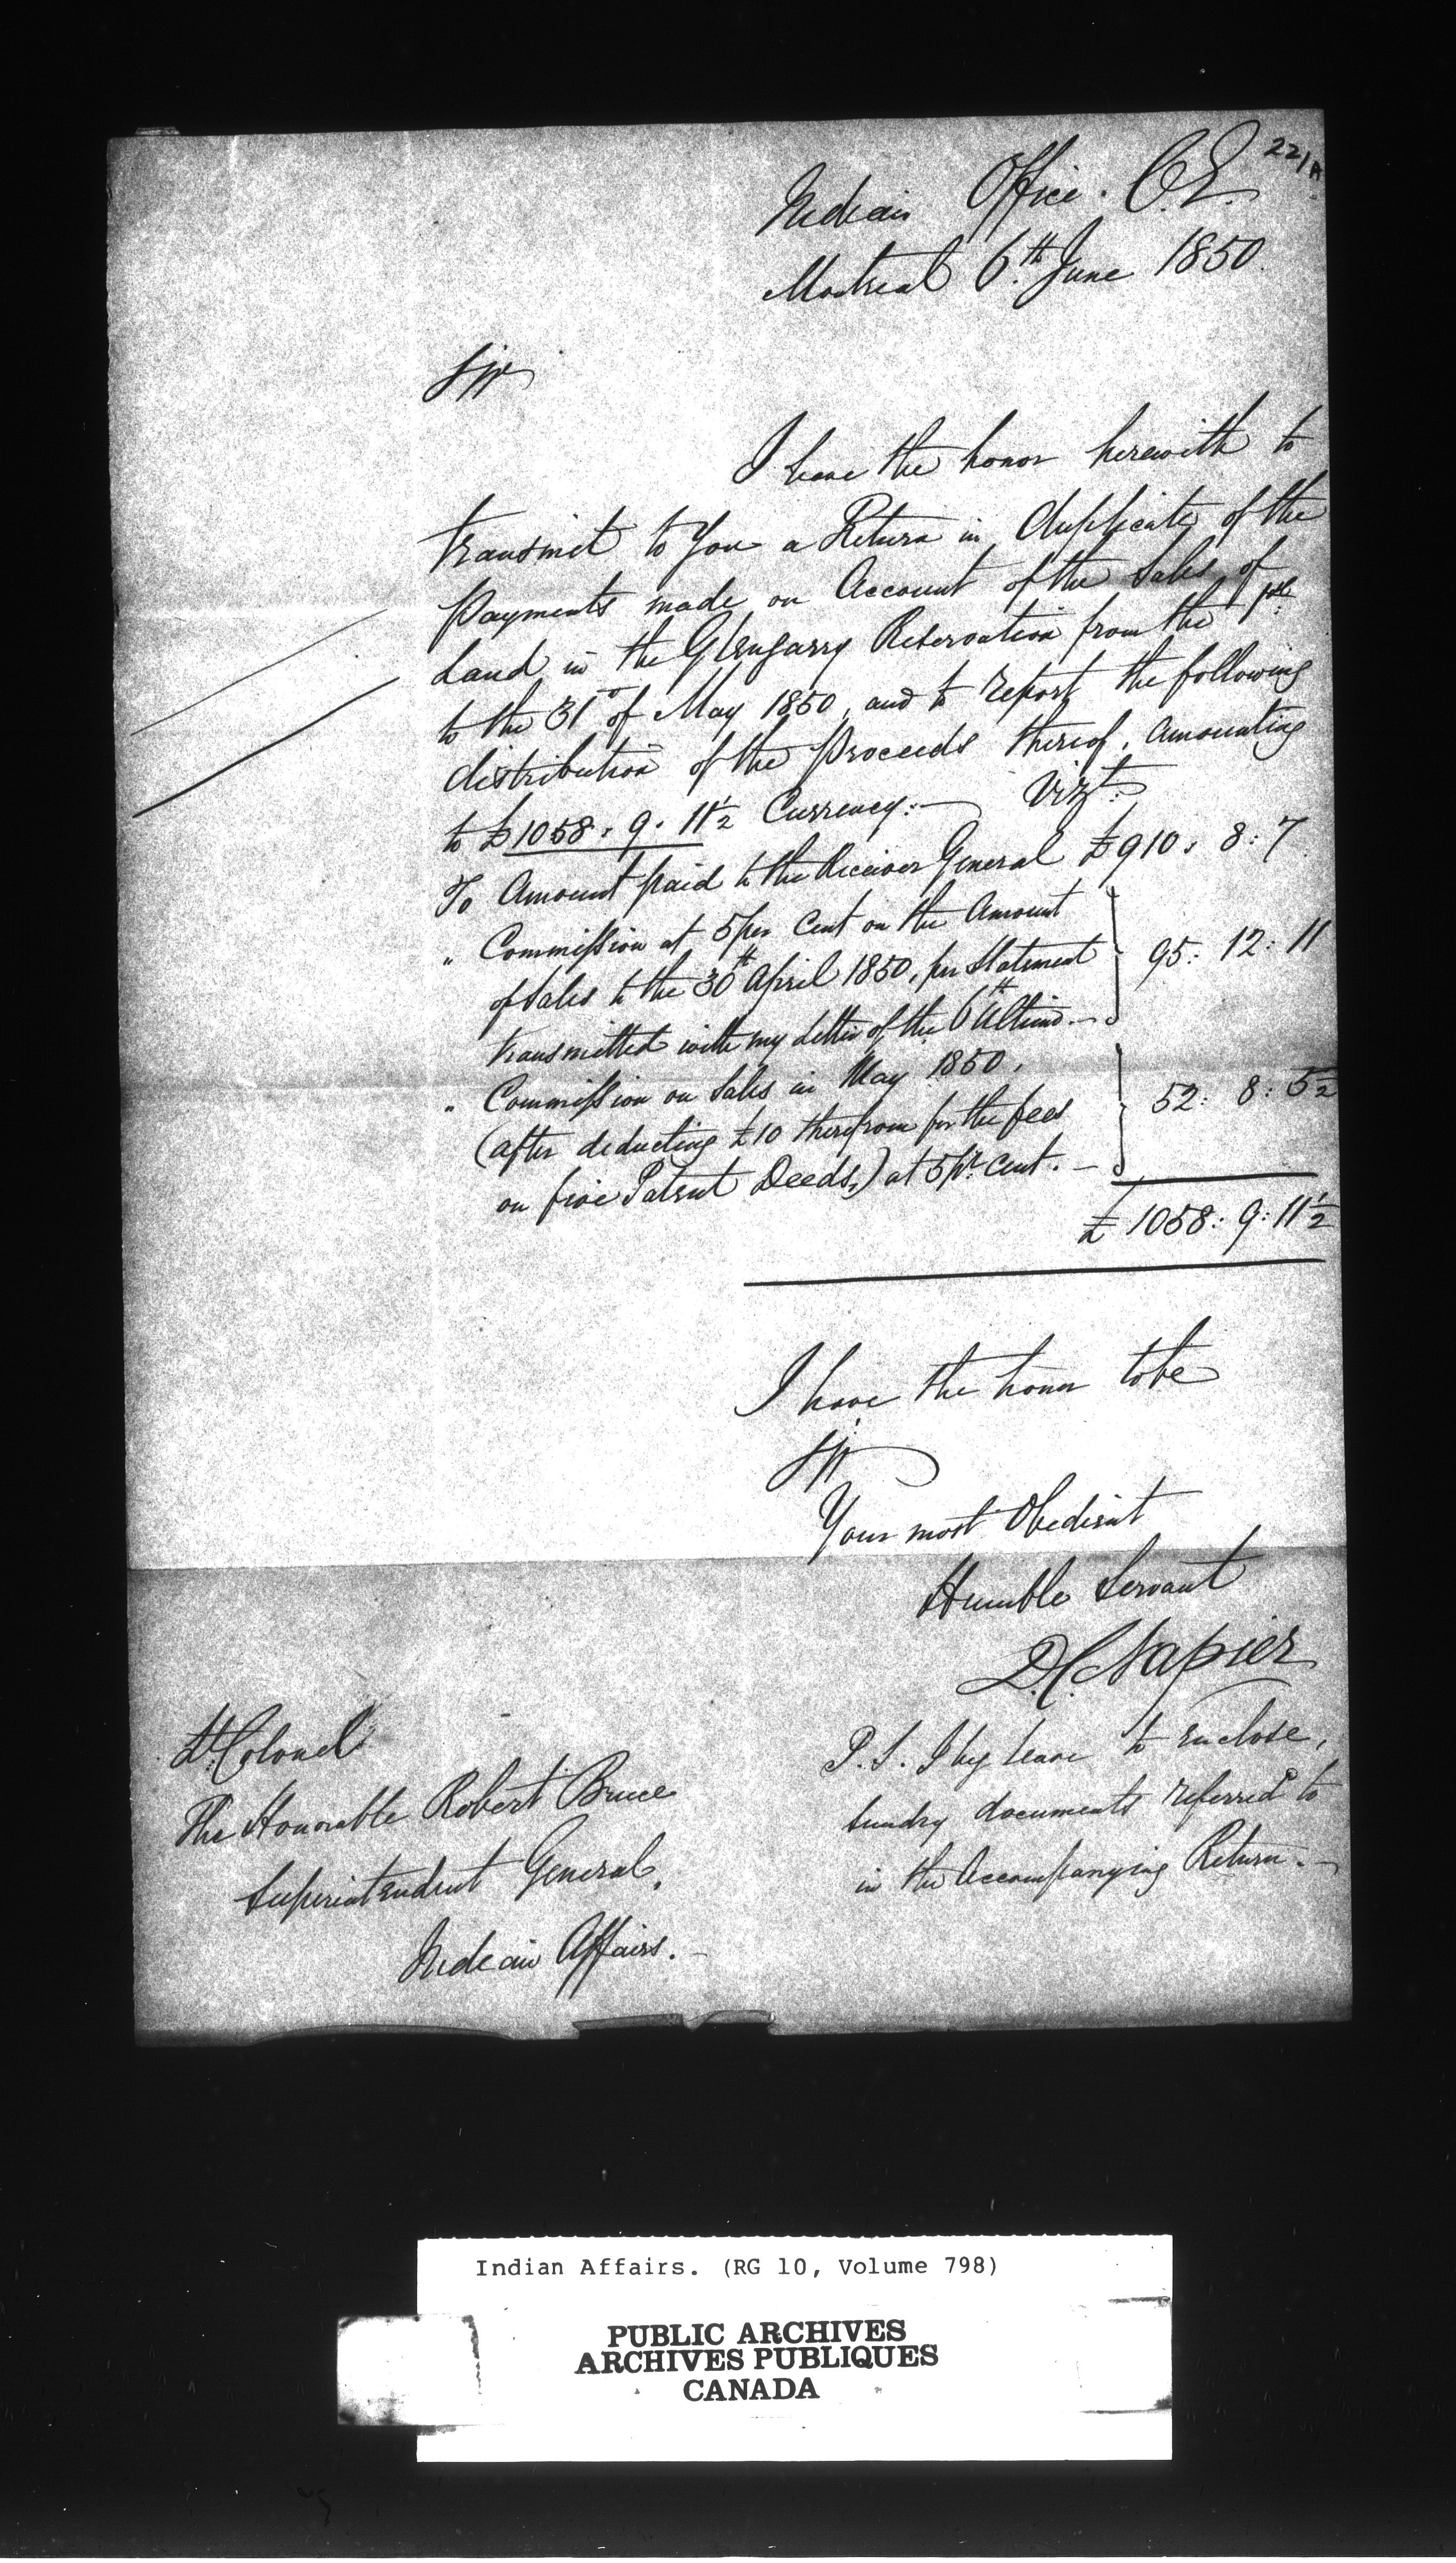 221A
Indian Office. C.E.
Montreal 6th. June 1850.
Sir
I have the honor herewith to
transmit to You a Return in Duplicate of the
Payments made on Account of the Sales of
Land in the Glengarry Reservation from the 1st.
to the 31st of May 1850, and to report the following
distribution of the Proceeds thereof, amounting
to £1058. 9. 11½ Currency:— Vizt:
To Amount paid to the Receiver General £910. 8: 7
" Commission at 5 per Cent on the Amount
of Sales to the 30th April 1850, per Statement 95: 12: 11
transmitted with my Letter of the 6th Ultimo.—
" Commission on Sales in May 1850,
(after deducting £10 therefrom for the fees 52: 8: 5½
on five Patent Deeds,) at 5 pr. Cent.—
£ 1058: 9: 11½
I have the honor to be
Sir
Your most Obedient
Humble Servant
D.C. Napier
P.S. I beg leave to enclose,
sundry documents referred to
in the Accompanying Return.—
Lt. Colonel
The Honorable Robert Bruce
Superintendent General,
Indian Affairs.—
Indian Affairs. (RG 10, Volume 798)
PUBLIC ARCHIVES
ARCHIVES PUBLIQUES
CANADA